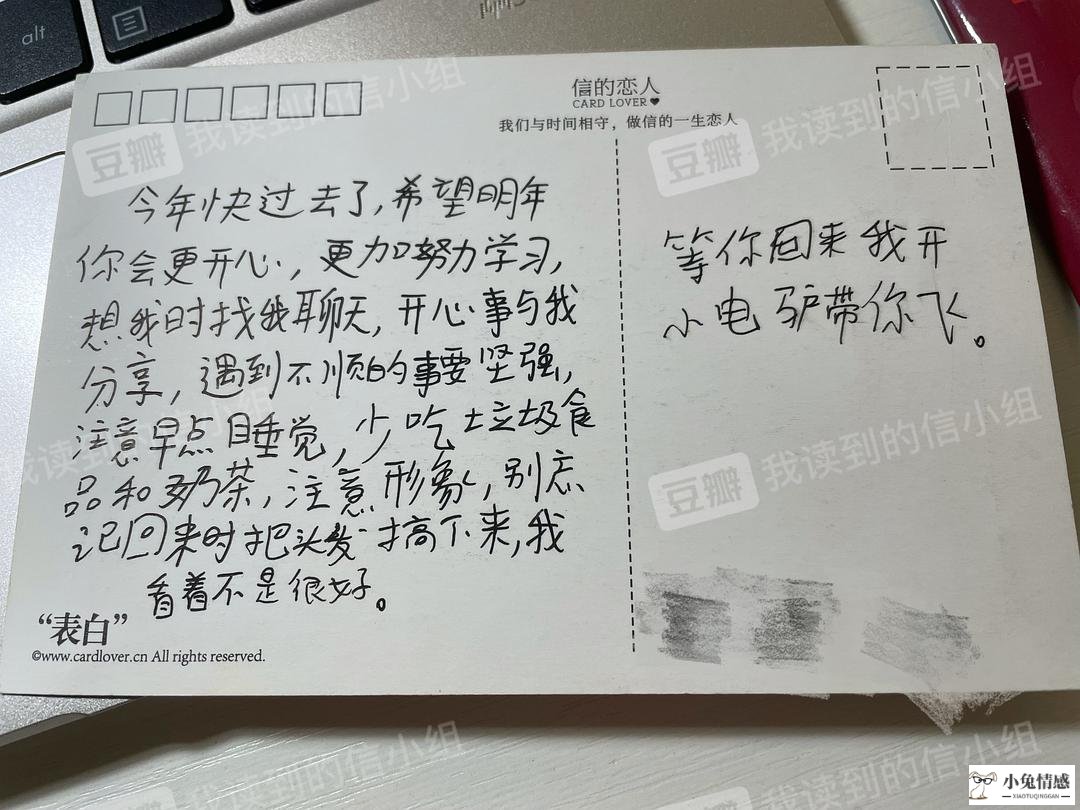 alt
信的恋人
CARD LOVER♥
我们与时间相守，做信的一生恋人
今年快过去了,希望明年
你会更开心,更加努力学习,
想我时找我聊天,开心事与我
分享,遇到不顺的事要坚强,
注意早点睡觉,少吃垃圾食
品和奶茶,注意形象,别忘
记回来时把头发搞下来,我
看着不是很好。
“表白”
©www.cardlover.cn All rights reserved.
等你回来我开
小电驴带你飞。
豆瓣 我读到的信小组
豆瓣 我读到的信小组
我读到的信小组
豆瓣 我读到的信小组
我读到的信小组
我读到的信小组
小兔情感
XIAOTUQINGGAN